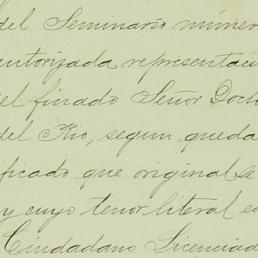 del Seminario númer
autorizada representaci
del finado Señor Doct
del Rio, segun queda
ificado que original se
y cuyo tenor literal es
Ciudadano Licenciad